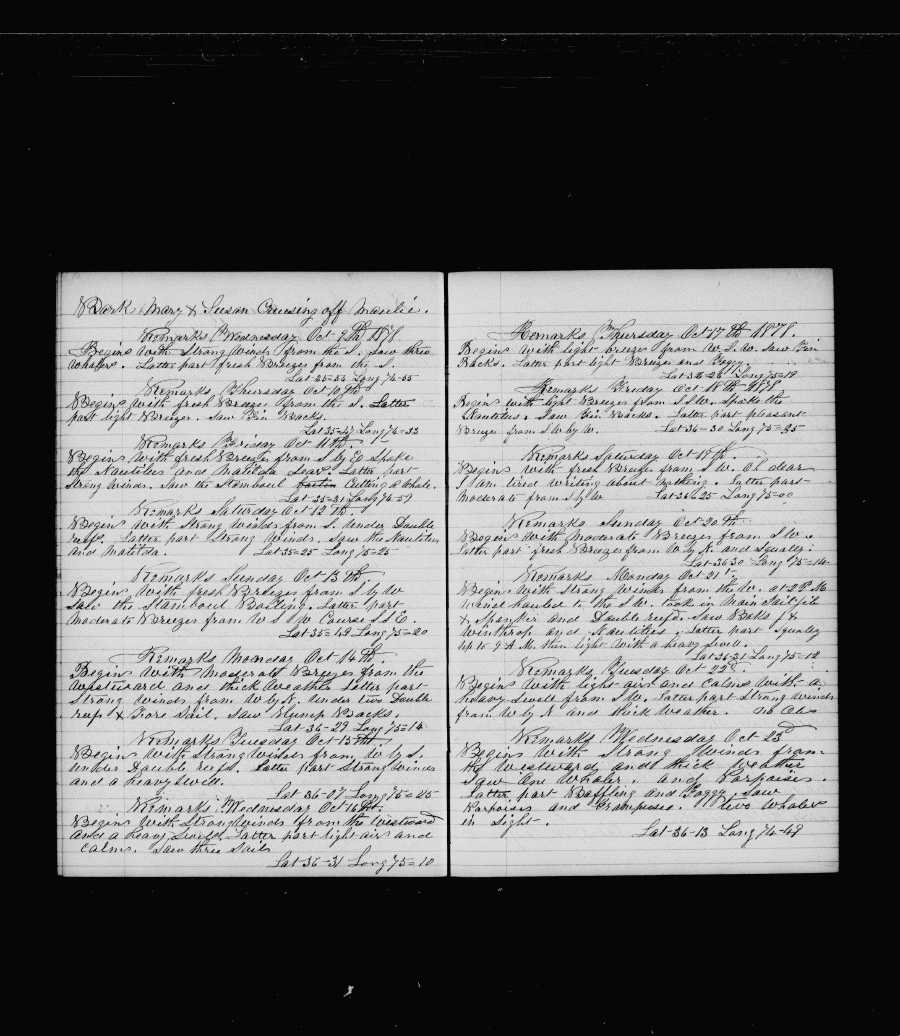 Bark Mary & Susan Cruising off Maulé.
Remarks Wednesday Oct 9th 1878
Begins with Strong Winds from the S. Saw three
Whalers. Latter part fresh Breezes from the S.
Lat 35=54 Long 74=55
Remarks Thursday Oct 10th
Begins with fresh Breezes from the S. Latter
part light Breezes. Saw Fin Backs.
Lat 35=47 Long 74=33
Remarks Friday Oct 11th.
Begins with fresh Breezes from S by E Spoke
the Nautilus and Matilda Sears. Latter part
Strong winds. Saw the Stamboul Cutting a Whale.
Lat 35=31 Long 74=59
Remarks Saturday Oct 12th.
Begins with Strong winds from S. Under Double
reefs. Latter part Strong Winds. Saw the Nautilus
and Matilda. Lat 35=25 Long 75=25
Remarks Sunday Oct 13th
Begins with fresh Breezes from S by W
Saw the Stamboul Boiling. Latter part
Moderate Breezes from W S W Course S S E.
Lat 35=49 Long 75=20
Remarks Monday Oct 14th.
Begins with Moderate Breezes from the
Westward and thick Weather Latter part
Strong winds from W by N. Under two Double
reefs & Fore Sail. Saw Hump Backs.
Lat 36=29 Long 75=14
Remarks Tuesday Oct 15th.
Begins with Strong Winds from W by S.
Under Double reefs. Latter Part Strong Winds
and a heavy Swell.
Lat 36-07 Long 75=25
Remarks Wednesday Oct 16th.
Begins with Strong Winds from the Westward
and a heavy Swell. Latter part light airs and
Calms. Saw three Sails
Lat 36-31 Long 75=10
Remarks Thursday Oct 17th 1878.
Begins with light breezes from W. S. W. Saw Fin
Backs. Latter part light Breezes and Foggy.
Lat 36-26 Long 75=19
Remarks Friday Oct 18th 1878
Begins with light Breezes from S S W. Spoke the
Nautilus. Saw Fin Backs. Latter part pleasant
Breezes from S W by W. Lat 36-30 Long 75=25
Remarks Saturday Oct 19th.
Begins with fresh Breezes from S W. Oh dear
I am tired writing about nothing. Latter part
Moderate from S by W Lat 36=25 Long 75=00
Remarks Sunday Oct 20th.
Begins with Moderate Breezes from S W.
Latter part fresh Breezes from W by N. and Squally.
Lat 36 30 Long 75=14
Remarks Monday Oct 21st
Begins with Strong winds from the W. at 2 P.M
Wind hauled to the S W. took in Main Sail jib
& Spanker and Double reefed. Saw Barks
Winthrop and Nautilus. Latter part Squally
up to 9 A. M. then light with a heavy swell.
Lat 36-31 Long 75=12
Remarks Tuesday Oct 22d.
Begins with light airs and Calms with a
heavy Swell from S W. Latter part Strong winds
from W by N and thick Weather. no Obs
Remarks Wednesday Oct 23d
Begins with Strong Winds from
the Westward and thick Weather
Saw One Whaler. and Porpoises.
Latter part Baffling and Foggy. Saw
Porpoises and Grampuses. two Whalers
in Sight.
Lat 36-13 Long 74-49